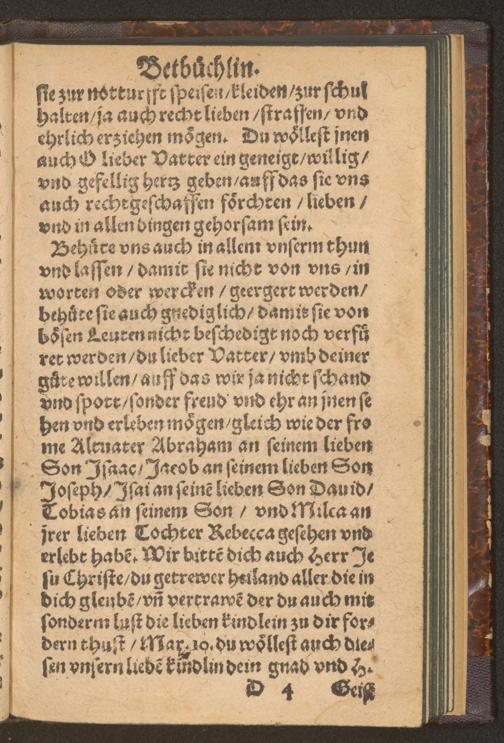 Betbüchlin.
sie zur notturfft speisen/kleiden/zur schul
halten/ja auch recht lieben/straffen/vnd
ehrlich erziehen mögen. Du wöllest jnen
auch O lieber Vatter ein geneigt/willig/
vnd gefellig hertz geben/auff das sie vns
auch rechtgeschaffen förchten/lieben/
vnd in allen dingen gehorsam sein.
Behüte vns auch in allem vnserm thun
vnd lassen/damit sie nicht von vns/in
worten oder wercken/geergert werden/
behüte sie auch gnediglich/damit sie von
bösen Leuten nicht beschedigt noch verfü
ret werden/du lieber Vatter/vmb deiner
güte willen/auff das wir ja nicht schand
vnd spott/sonder freud vnd ehr an jnen se
hen vnd erleben mögen/gleich wie der fro
me Altuater Abraham an seinem lieben
Son Isaac/Jacob an seinem lieben Son
Joseph/Isai an seinē lieben Son Dauid/
Tobias an seinem Son/vnd Milca an
jrer lieben Tochter Rebecca gesehen vnd
erlebt habē. Wir bittē dich auch Herr Je
su Christe/du getrewer heiland aller die in
dich gleubē/vñ vertrawē der du auch mit
sonderm lust die lieben kindlein zu dir for-
dern thust/Mar. 10. du wöllest auch die-
sen vnsern liebē kindlin dein gnad vnd H.
D 4 Geist